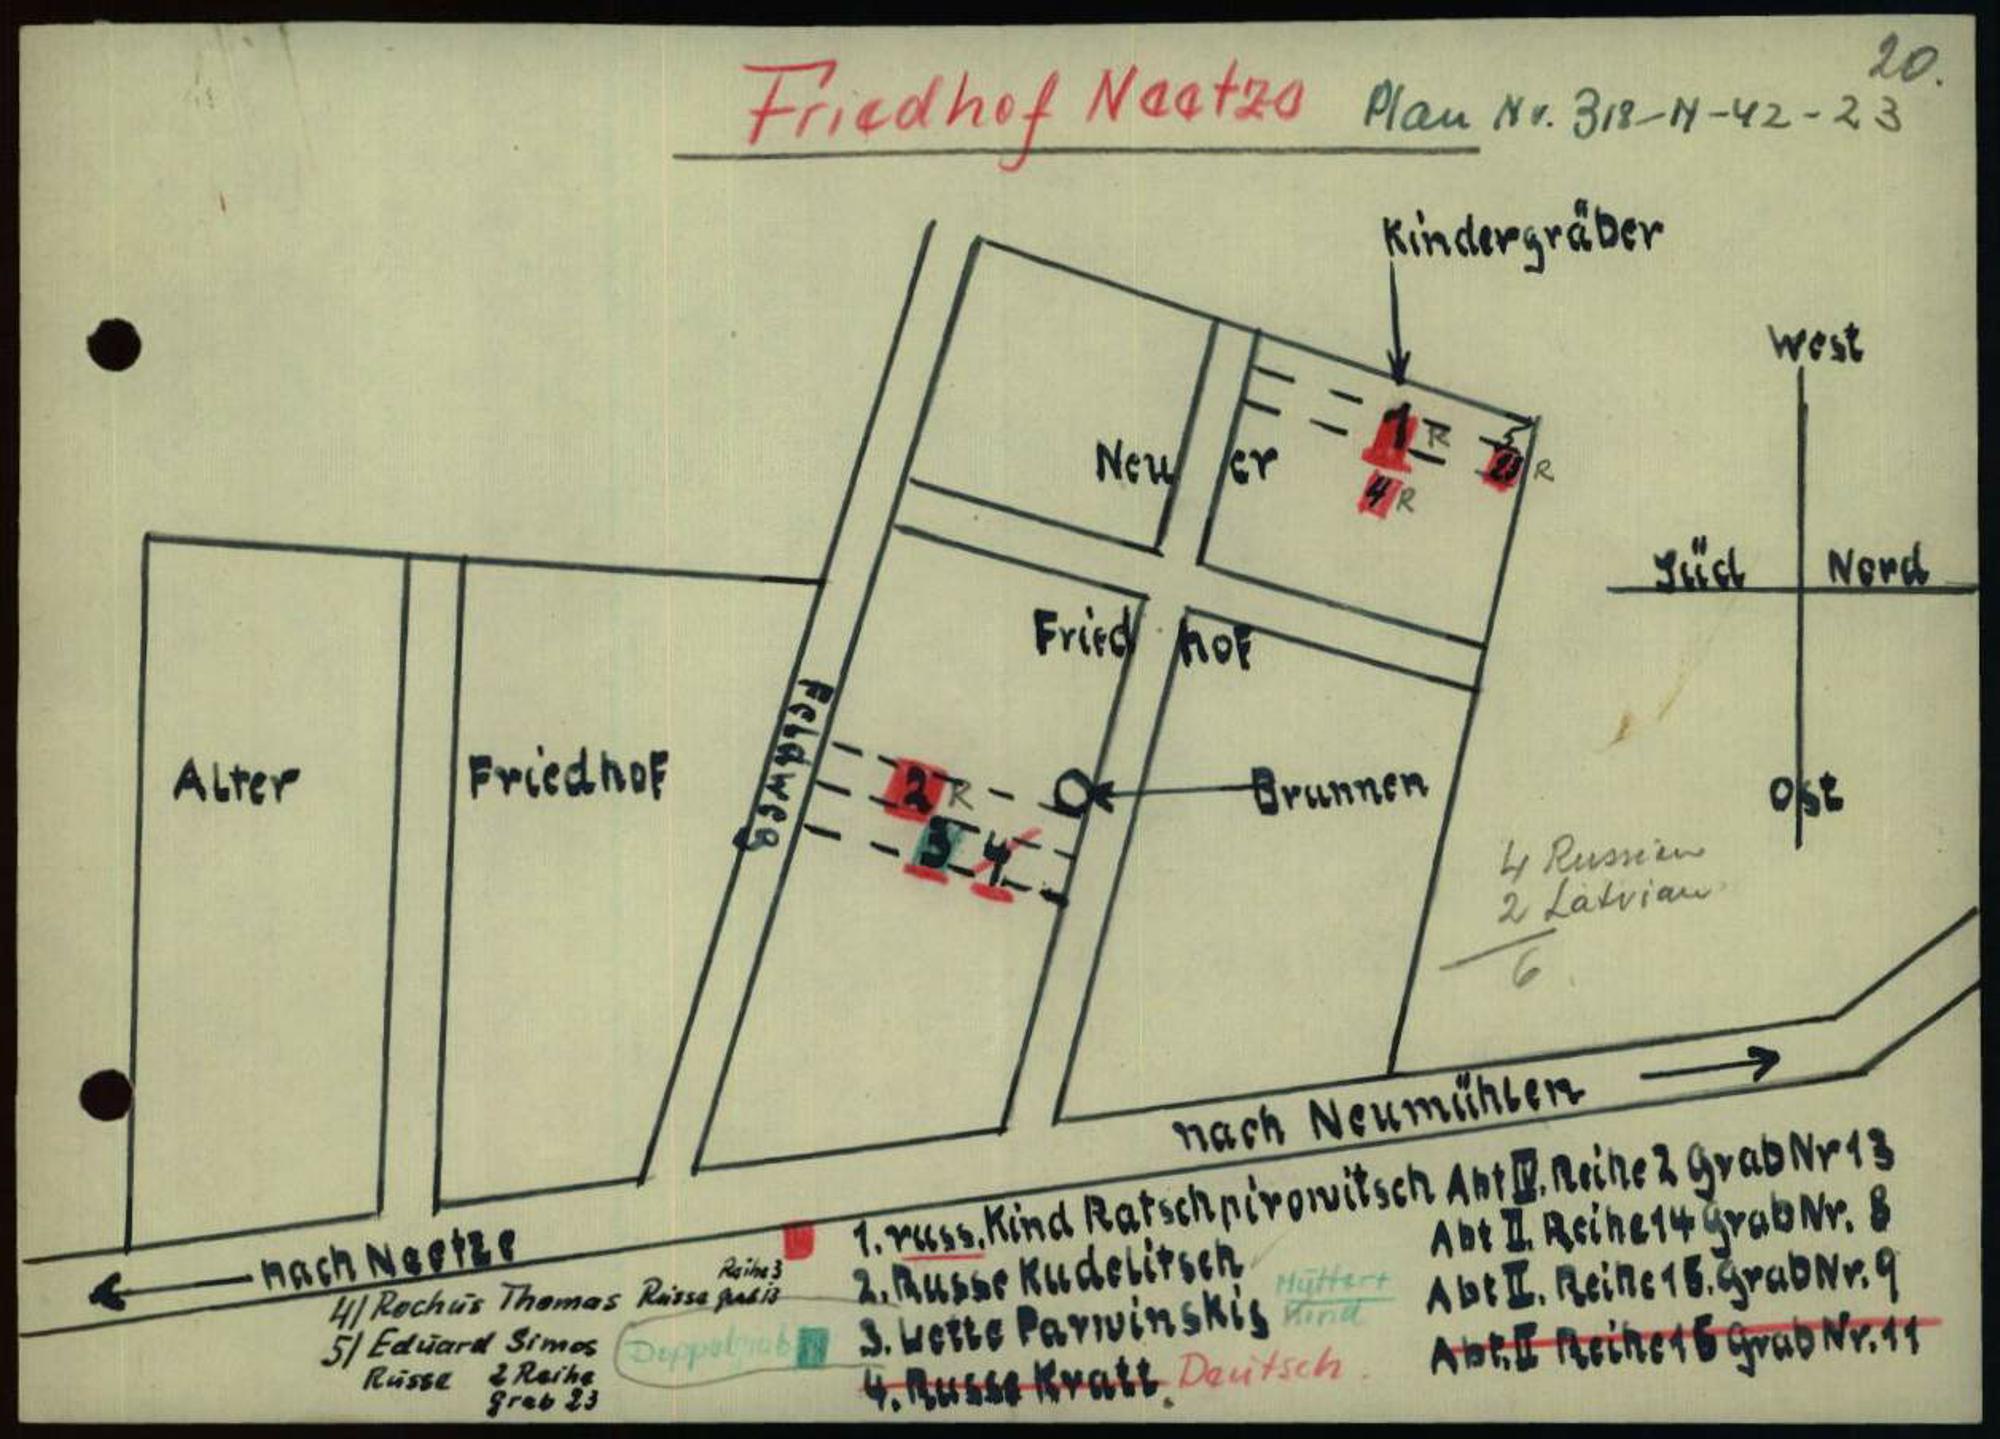 20.
Friedhof Neetze Plan Nr. 318-N-42-23
Kindergräber
West
Süd Nord
Ost
1 R 5
23 R
4 R
Neuer
Friedhof
Alter Friedhof
Feldweg
2 R
3 4
Brunnen
4 Russian
2 Latvian
6
nach Neumühlen
nach Neetze
1. russ. Kind Ratschpirowitsch Abt IV. Reihe 2 Grab Nr 13
2. Russe Kudelitsch Abt II. Reihe 14 Grab Nr. 8
3. Lette Parwinskis Mutter+ Kind Abt II. Reihe 15. Grab Nr. 9
4. Russe Kratt. Deutsch. Abt. II Reihe 15 Grab Nr. 11
4/ Rochus Thomas Russe Reihe 3
Grab 13
5/ Eduard Simos
Russe 2 Reihe
Grab 23
Doppelgrab